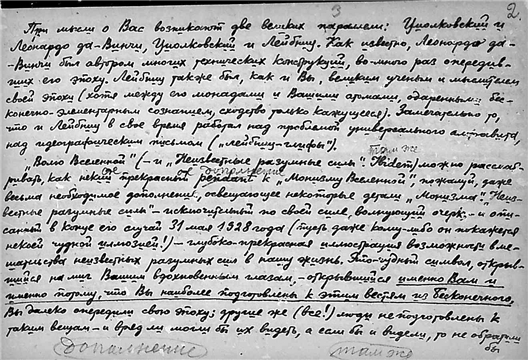 3
2.
При мысли о Вас возникают две великих параллели: Циолковский и
Леонардо да-Винчи, Циолковский и Лейбниц. Как известно, Леонардо да-
-Винчи был автором многих технических конструкций, во-много раз опередив-
ших его эпоху. Лейбниц также был, как и Вы, великим ученым и мыслителем
своей эпохи (хотя между его монадами и Вашими атомами, одаренными бес-
конечно-элементарным сознанием, сходство только кажущееся). Замечательно то,
что и Лейбниц в свое время работал над проблемой универсального алфавита,
над идеографическим письмом ("лейбниц-глифы").
там же
"Волю Вселенной" (-и "Неизвестные разумные силы" Ibidem) можно рассмат-
дополнение
ривать как некий прекрасный pendant к "Монизму Вселенной", пожалуй, даже
весьма необходимое дополнение, освещающее некоторые детали "Монизма". "Неиз-
вестные разумные силы" - исключительный по своей силе, волнующий очерк - и опи-
санный в конце его случай 31 мая 1928 года (пусть даже кому-либо он покажется
некоей чудной иллюзией!) - глубоко-прекрасная иллюстрация возможности вме-
шательства неизвестных разумных сил в нашу жизнь. Это-чудный символ, открыв-
шийся на миг Вашим вдохновенным глазам, - открывшийся именно Вам и
именно потому, что Вы наиболее подготовлены к этим вестям из Бесконечного,
Вы далеко опередили свою эпоху: другие же (все!) люди не подготовлены к
таким вещам - и вряд ли могли бы их видеть, а если бы и видели, то не обратили
бы
дополнение там же